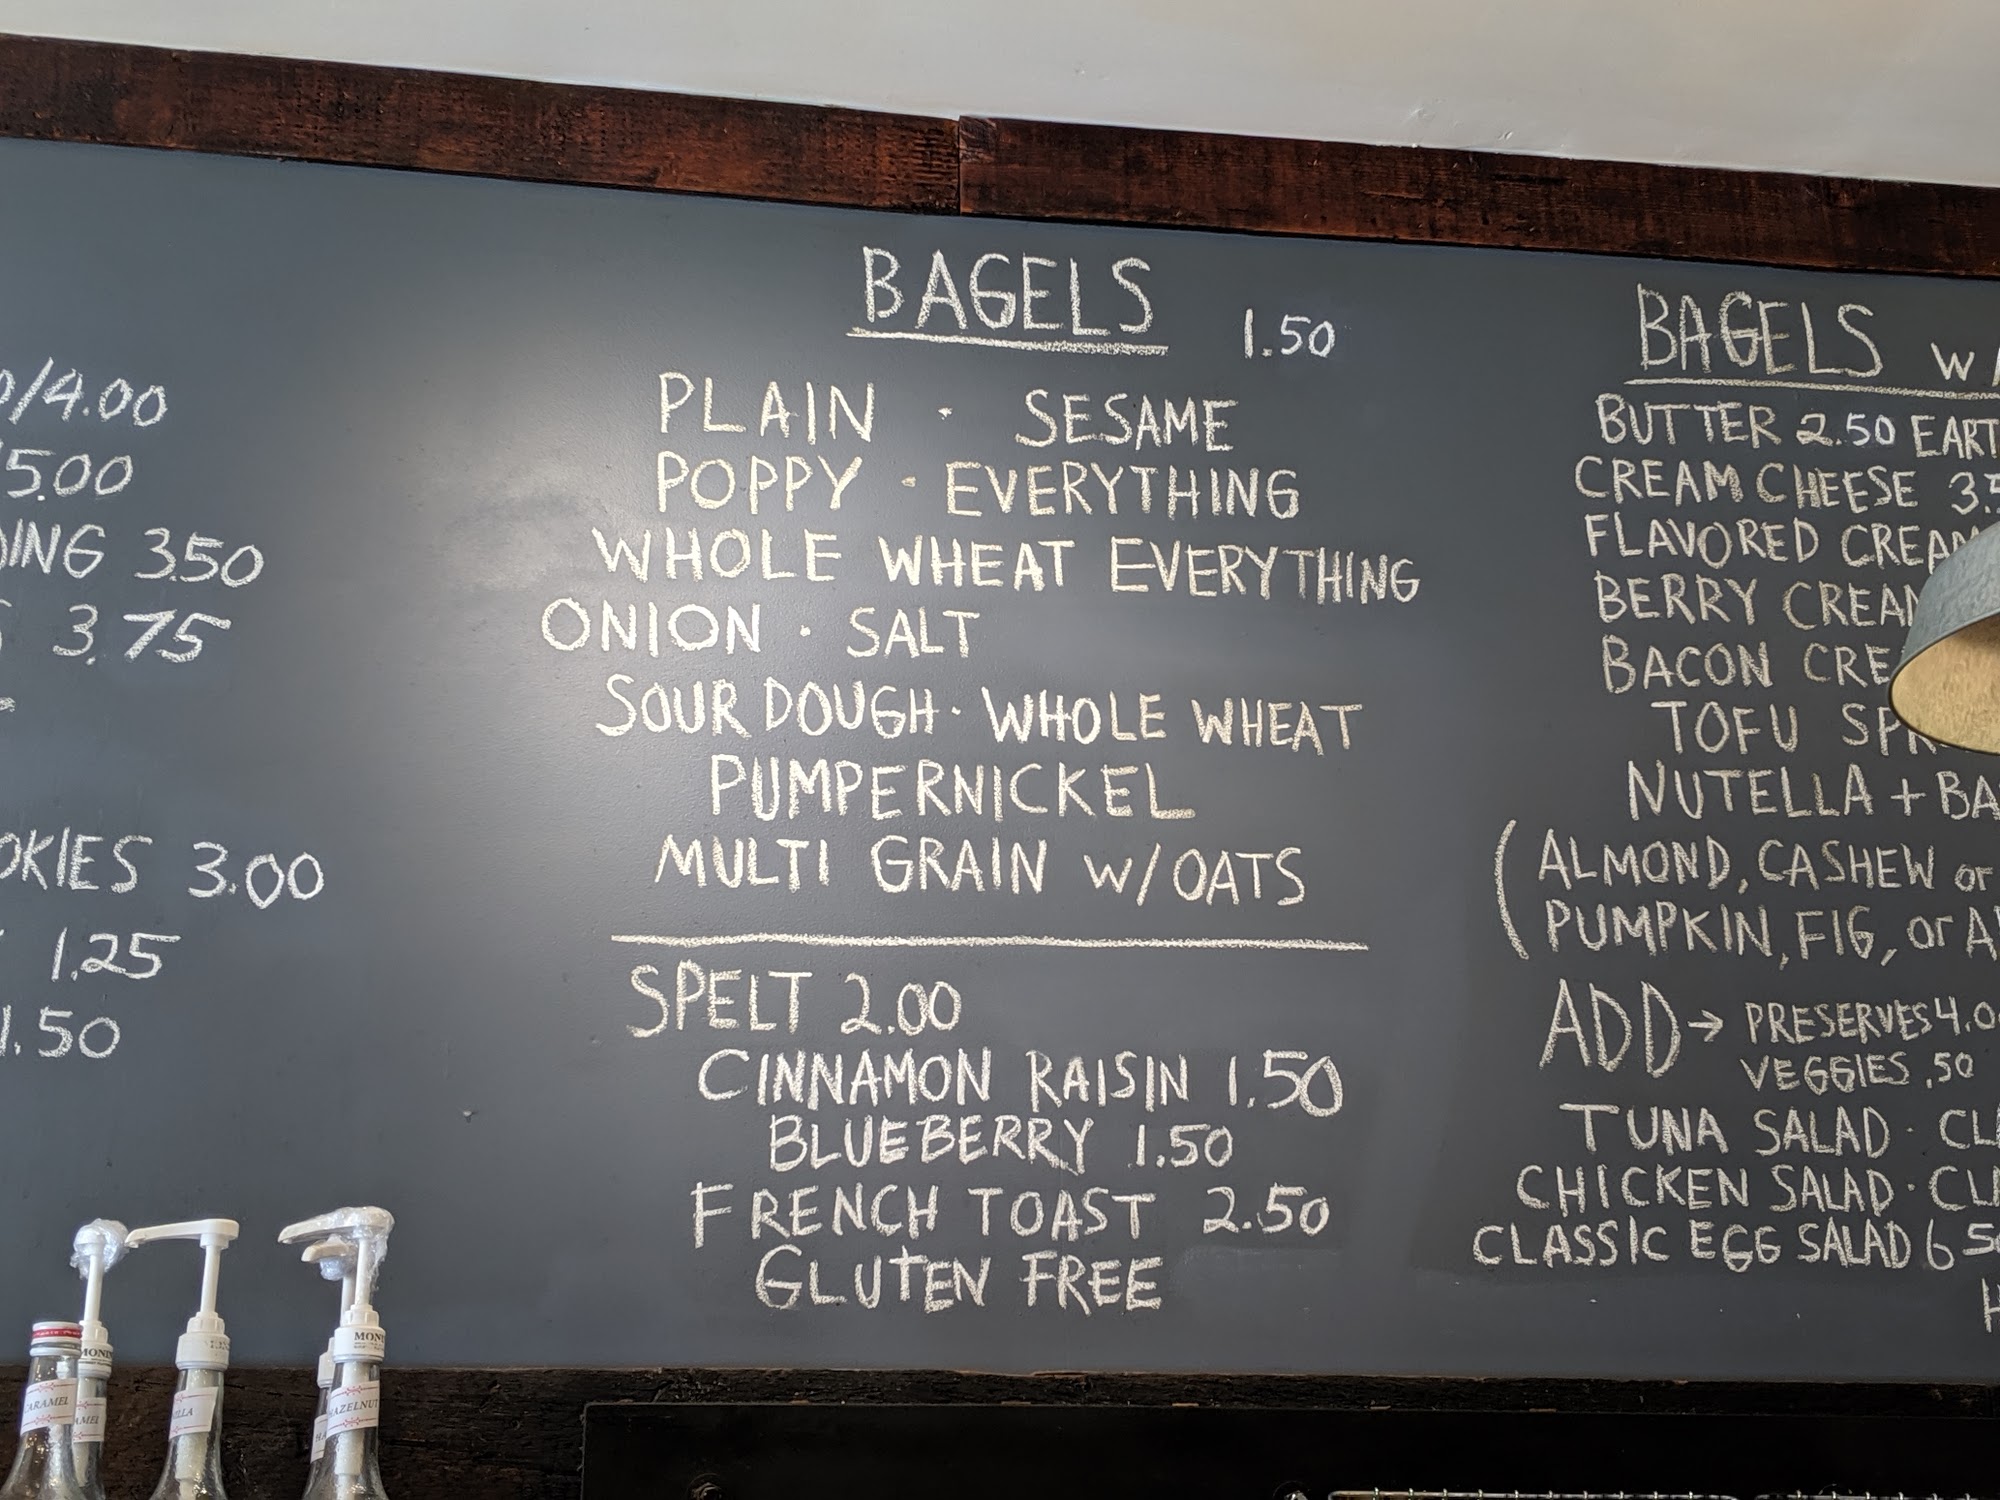 /4.00
5.00
3.50
3.75
3.00
1.25
1.50
BAGELS 1.50
PLAIN · SESAME
POPPY · EVERYTHING
WHOLE WHEAT EVERYTHING
ONION · SALT
SOUR DOUGH · WHOLE WHEAT
PUMPERNICKEL
MULTI GRAIN W/OATS
SPELT 2.00
CINNAMON RAISIN 1.50
BLUEBERRY 1.50
FRENCH TOAST 2.50
GLUTEN FREE
BAGELS W/
BUTTER 2.50 EART
CREAM CHEESE 3.5
FLAVORED CREAM
BERRY CREAM
BACON CRE
TOFU SPR
NUTELLA + BA
(ALMOND, CASHEW or
PUMPKIN, FIG, or A
ADD → PRESERVES 4.00
VEGGIES .50
TUNA SALAD · CL
CHICKEN SALAD · CL
CLASSIC EGG SALAD 6 50
H
MONI
MONI
CARAMEL
AMEL
ILLA
HAZELNUT